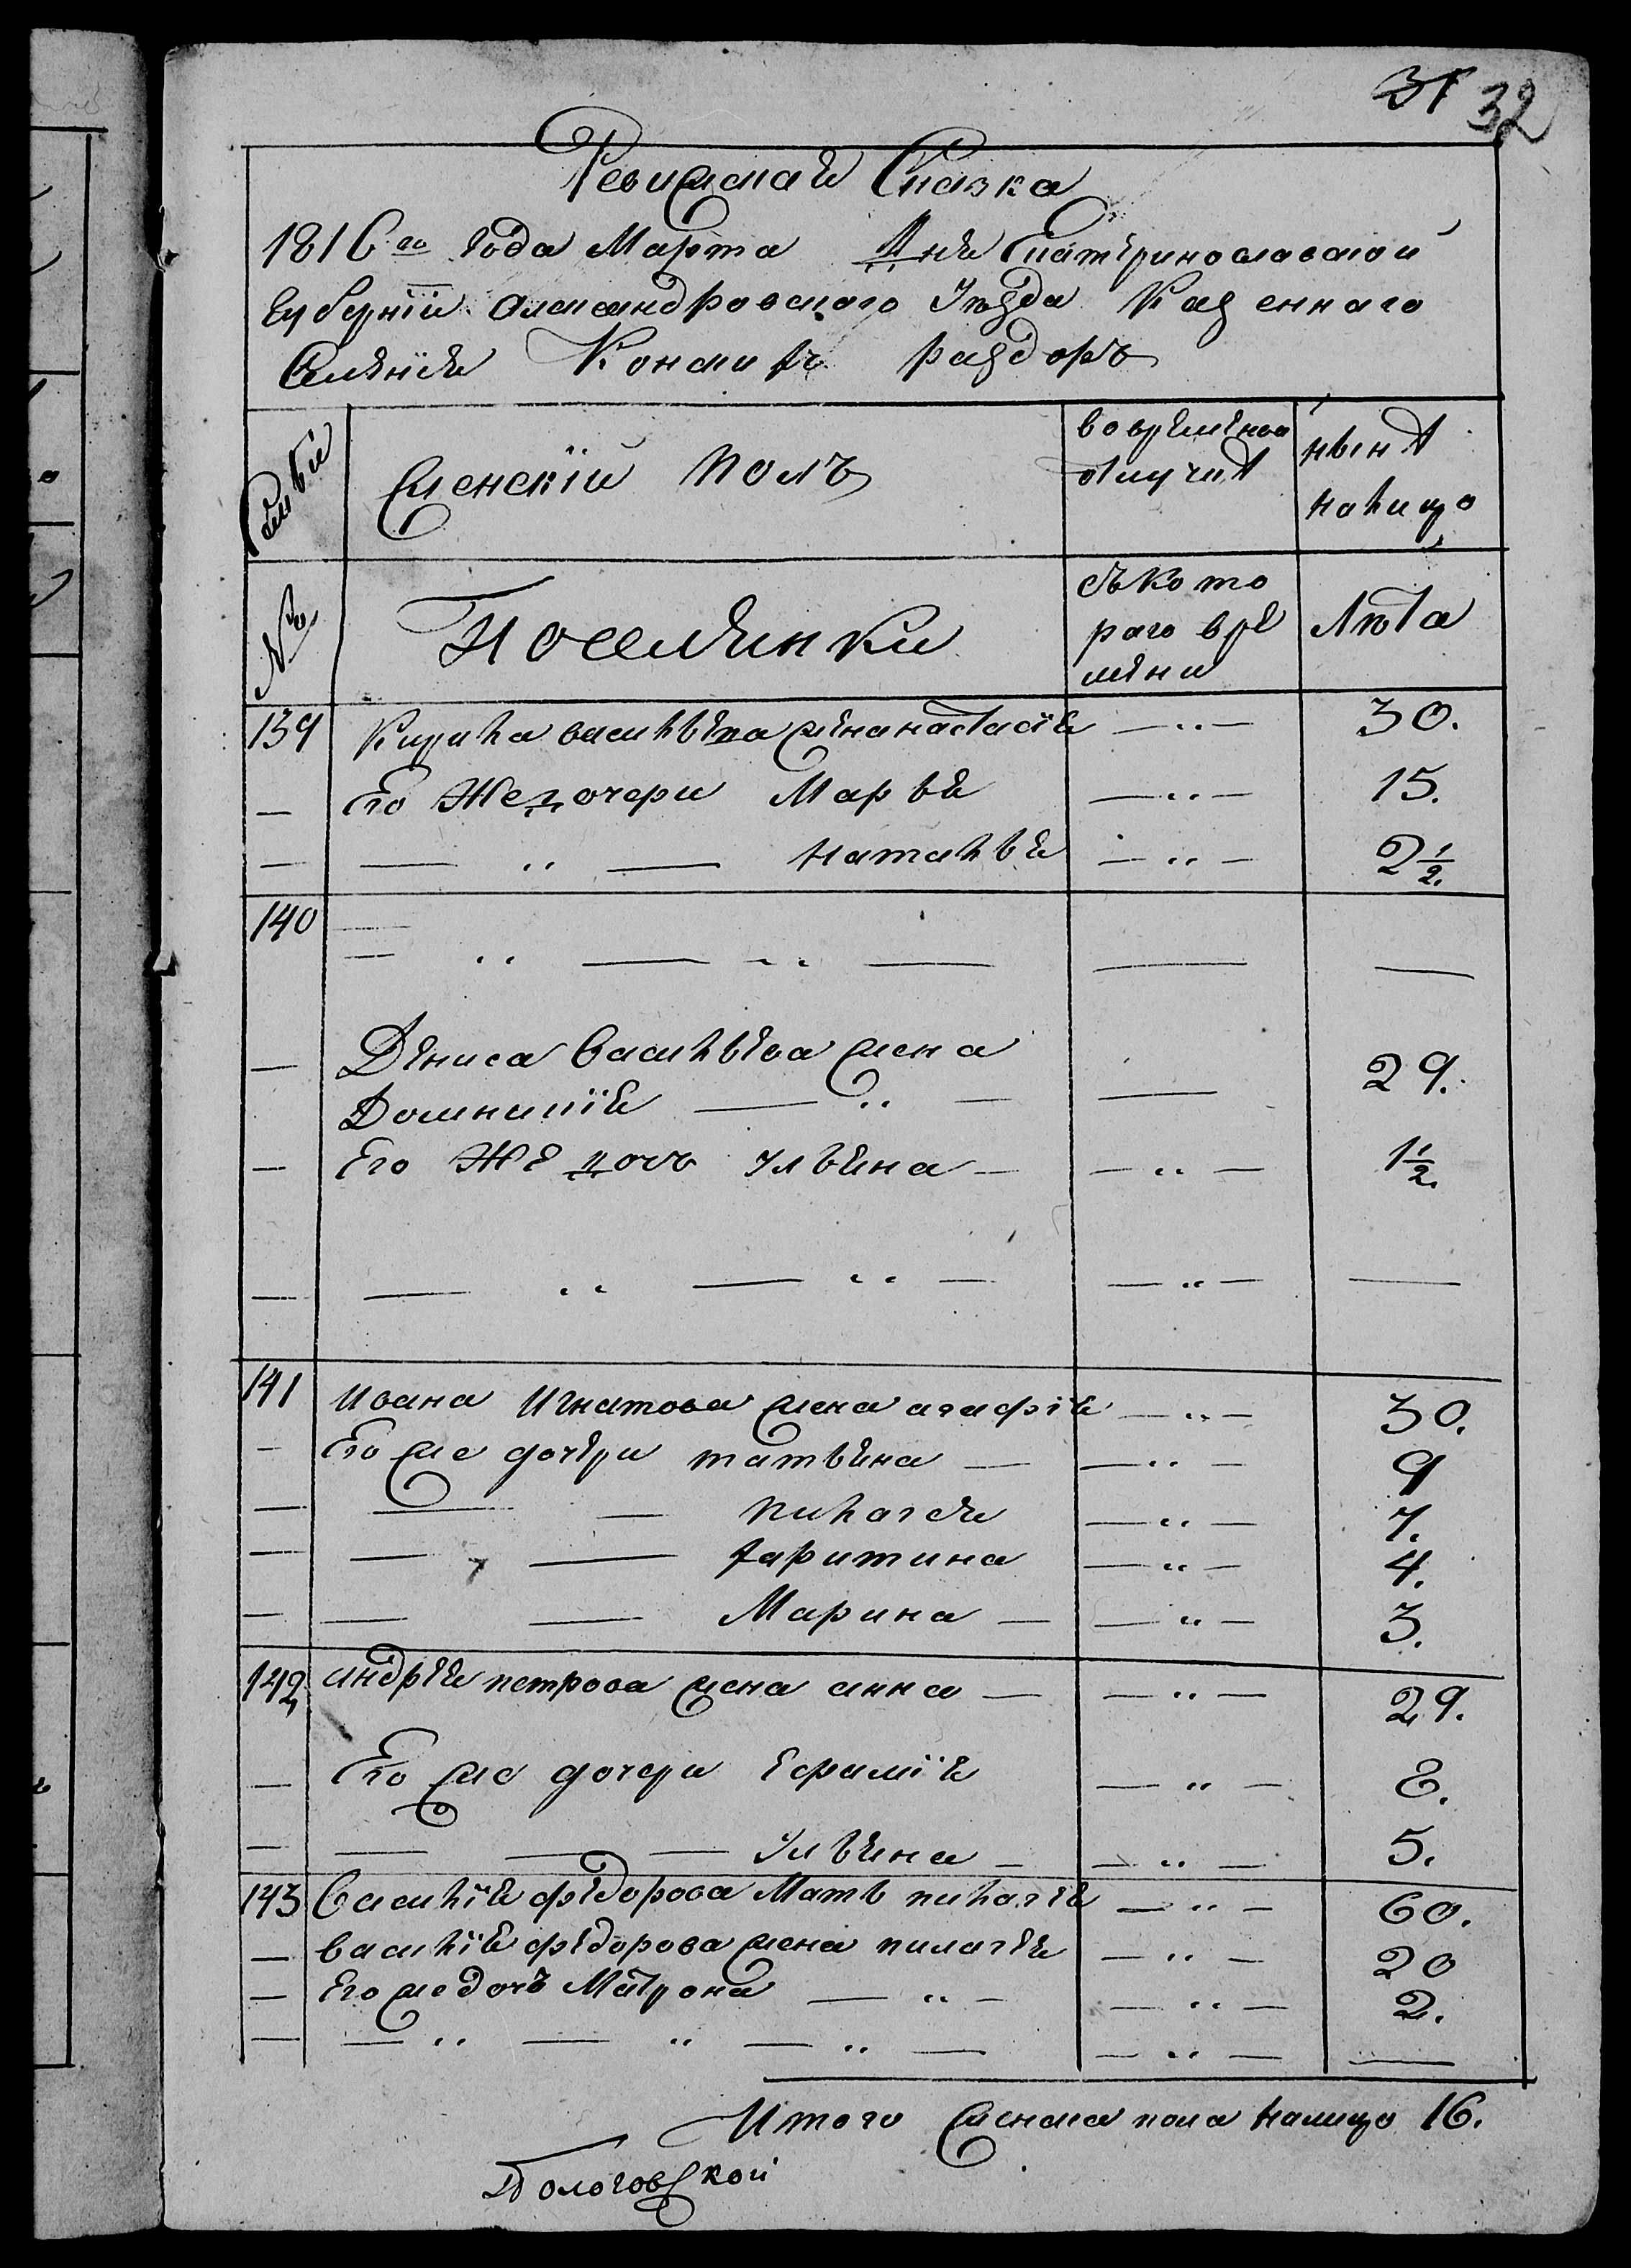 31 32
Ревизская Сказка
1816го года Марта дня Екатеринославской
Губернiи Александровского Уезда Казенного
Селенiя Конских раздоръ
Семьи
женскiй полъ
во временной отлучкѣ
нынѣ налицо
№
Поселянки
съ которого времени
Лѣта
139 Кирила васильева жена настасiя — „ — 30.
— Его Же дочери Марья — „ — 15.
— — „ — наталья — „ — 2 1/2.
140 —
— „ — „ — — —
— Дениса васильева жена
Домникiя — „ — — 29.
— Его Же дочь ульяна — — „ — 1 1/2.
— — „ — „ — — „ — —
141 Ивана Игнатова жена агафiя — „ — 30.
— Его же дочери татьяна — — „ — 9
— — — пилагея — „ — 7.
— — — харитина — „ — 4.
— — — Марина — — „ — 3.
142 андрея петрова жена анна — — „ — 29.
— Его же дочери ефимiя — „ — 8.
— — — — ульяна — — „ — 5.
143 Василiя федорова Мать пилагея — „ — 60.
— василiя федорова жена пилагея — „ — 20
— Его же дочь Матрона — „ — — „ — 2.
— — „ — „ — „ — — „ — —
Итого женска пола налицо 16.
Бологовской